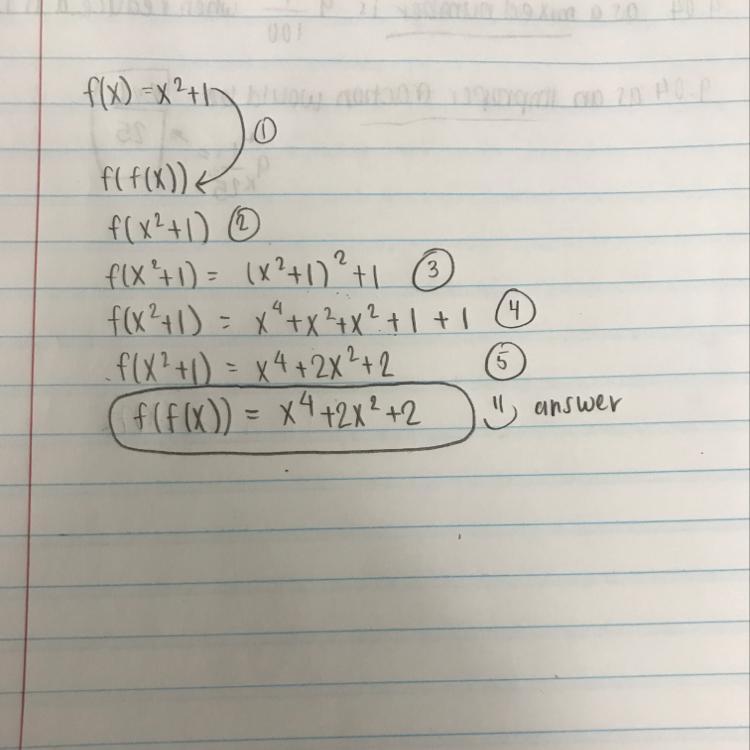 f(x) = x²+1
①
f(f(x))
f(x²+1) ②
f(x²+1) = (x²+1)²+1 ③
f(x²+1) = x⁴+x²+x²+1+1 ④
f(x²+1) = x⁴+2x²+2 ⑤
f(f(x)) = x⁴+2x²+2 answer